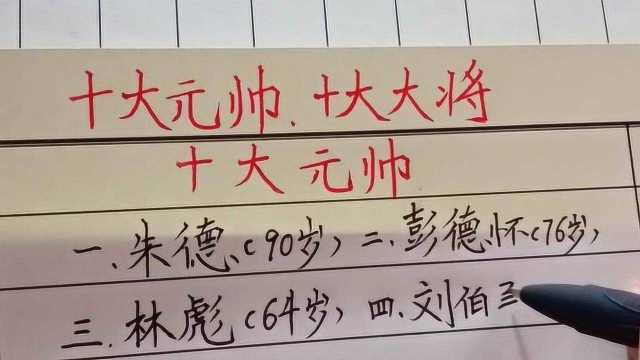 十大元帅、十大大将
十大元帅
一、朱德、(90岁) 二、彭德怀(76岁)
三、林彪(64岁) 四、刘伯